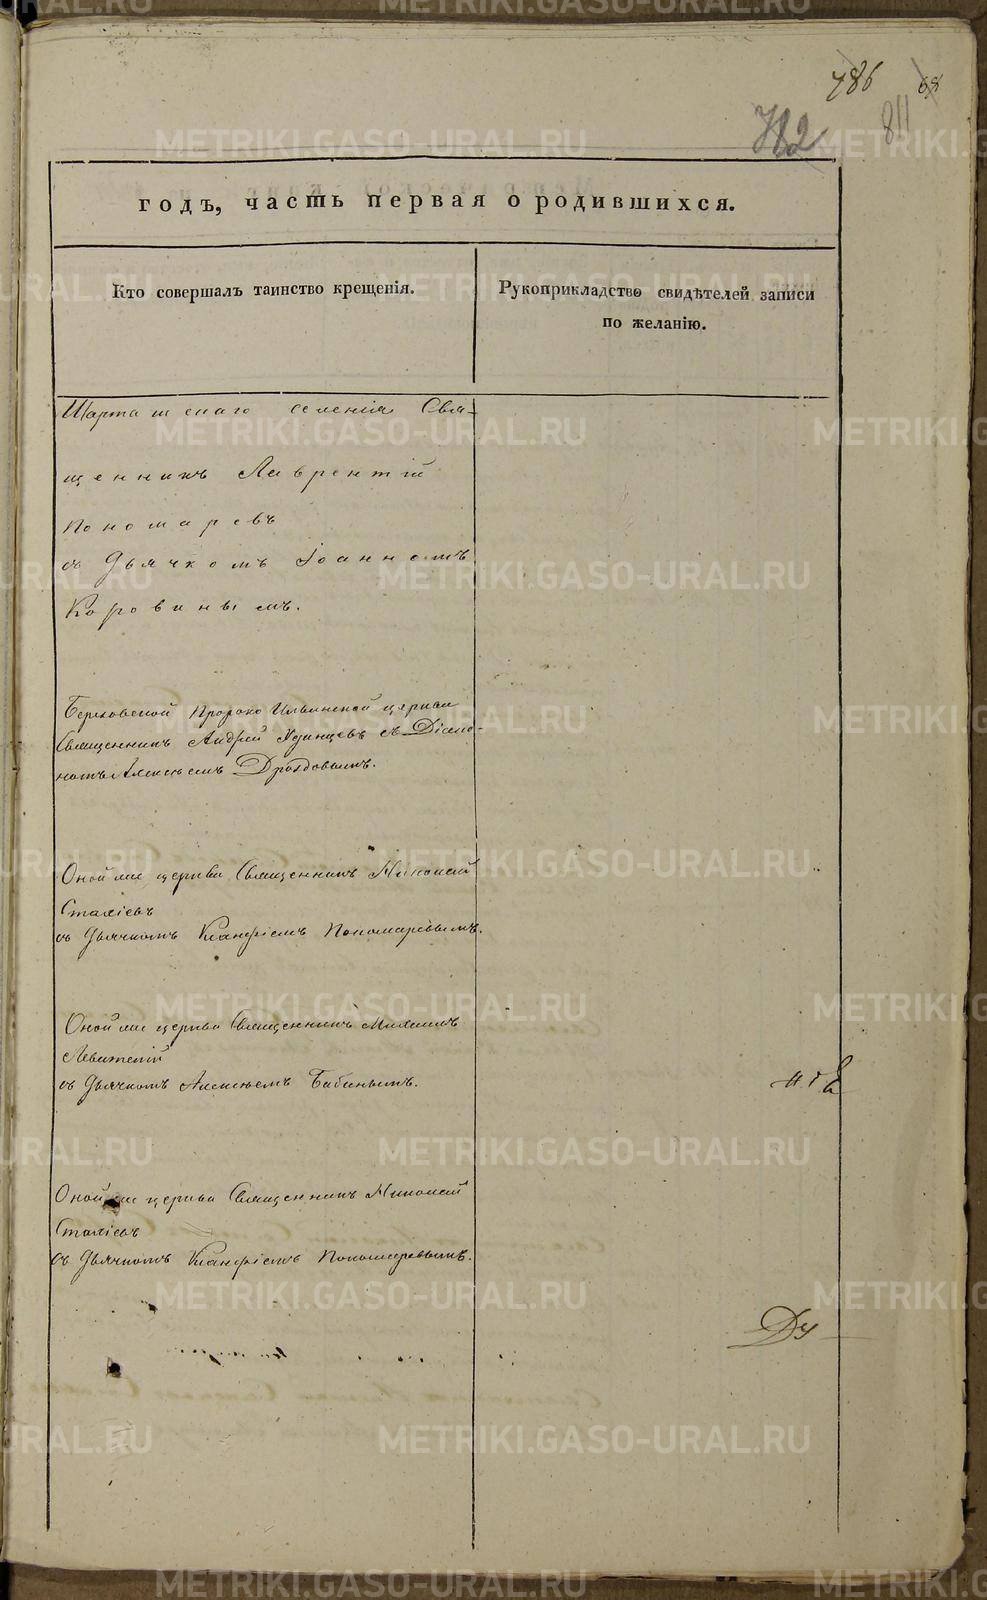 786 68
782 811
годъ, часть первая о родившихся.
Кто совершалъ таинство крещенія.
Рукоприкладство свидѣтелей записи
по желанію.
Шарташскаго селенія Свя-
щенникъ Лаврентій
Пономаревъ
съ Дьячкомъ Іоанномъ
Коровинымъ.
Березовской Пророко Ильинской церкви
Священникъ Андрей Удинцевъ съ Діако-
номъ Алексѣемъ Дроздовымъ.
Оной же церкви Священникъ Николай
съ Дьячкомъ Пономаревымъ.
Оной же церкви Священникъ Михаилъ
Левитскій
съ Дьячкомъ Алексѣемъ Бабинымъ.
Оной же церкви Священникъ Николай
съ Дьячкомъ Пономаревымъ.
METRIKI.GASO-URAL.RU